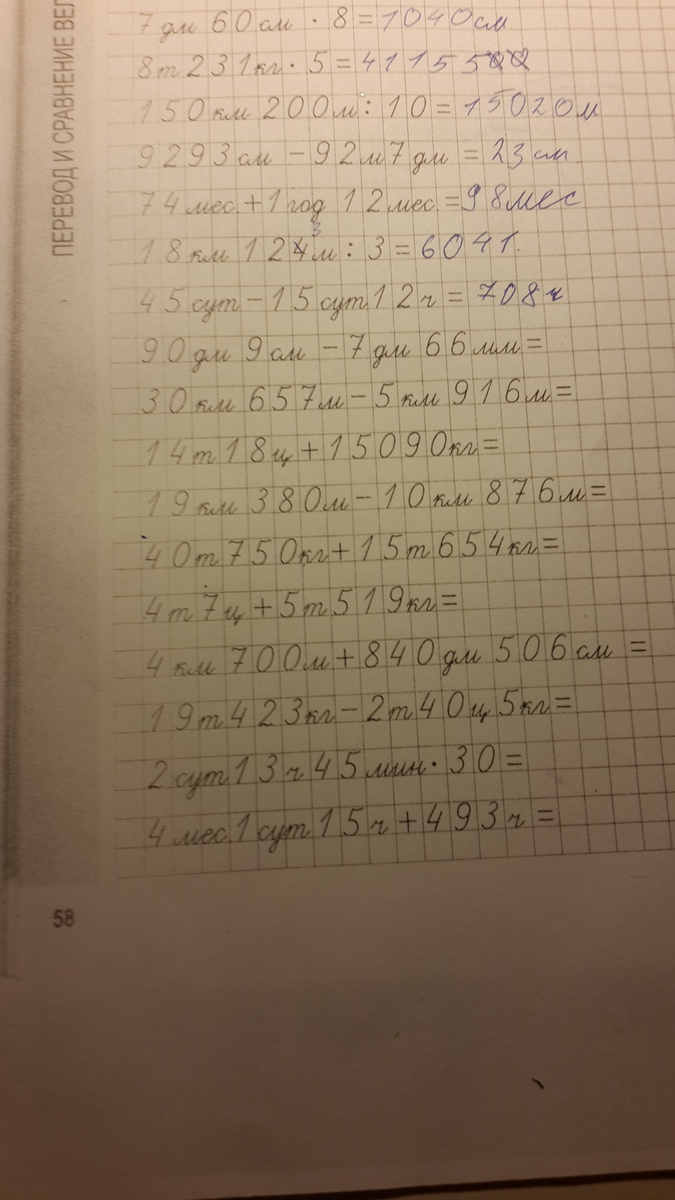 ПЕРЕВОД И СРАВНЕНИЕ ВЕЛ
7 дм 60 см · 8 = 1040 см
8 т 231 кг · 5 = 41155
150 км 200 м : 10 = 15020 м
9293 см - 92 м 7 дм = 23 см
74 мес. + 1 год 12 мес. = 98 мес
18 км 123 м : 3 = 6041.
45 сут - 15 сут 12 ч = 708 ч
90 дм 9 см - 7 дм 66 мм =
30 км 657 м - 5 км 916 м =
14 т 18 ц + 15090 кг =
19 км 380 м - 10 км 876 м =
40 т 750 кг + 15 т 654 кг =
4 т 7 ц + 5 т 519 кг =
4 км 700 м + 840 дм 506 см =
19 т 423 кг - 2 т 40 ц 5 кг =
2 сут 13 ч 45 мин · 30 =
4 мес. 1 сут 15 ч + 493 ч =
58